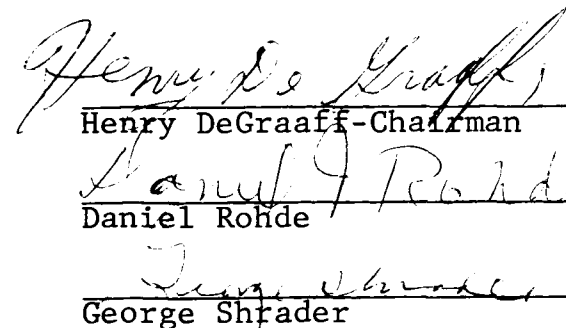 Henry De Graaff,
Henry DeGraaff-Chairman
Daniel J Rohd
Daniel Rohde
George Shrader
George Shrader